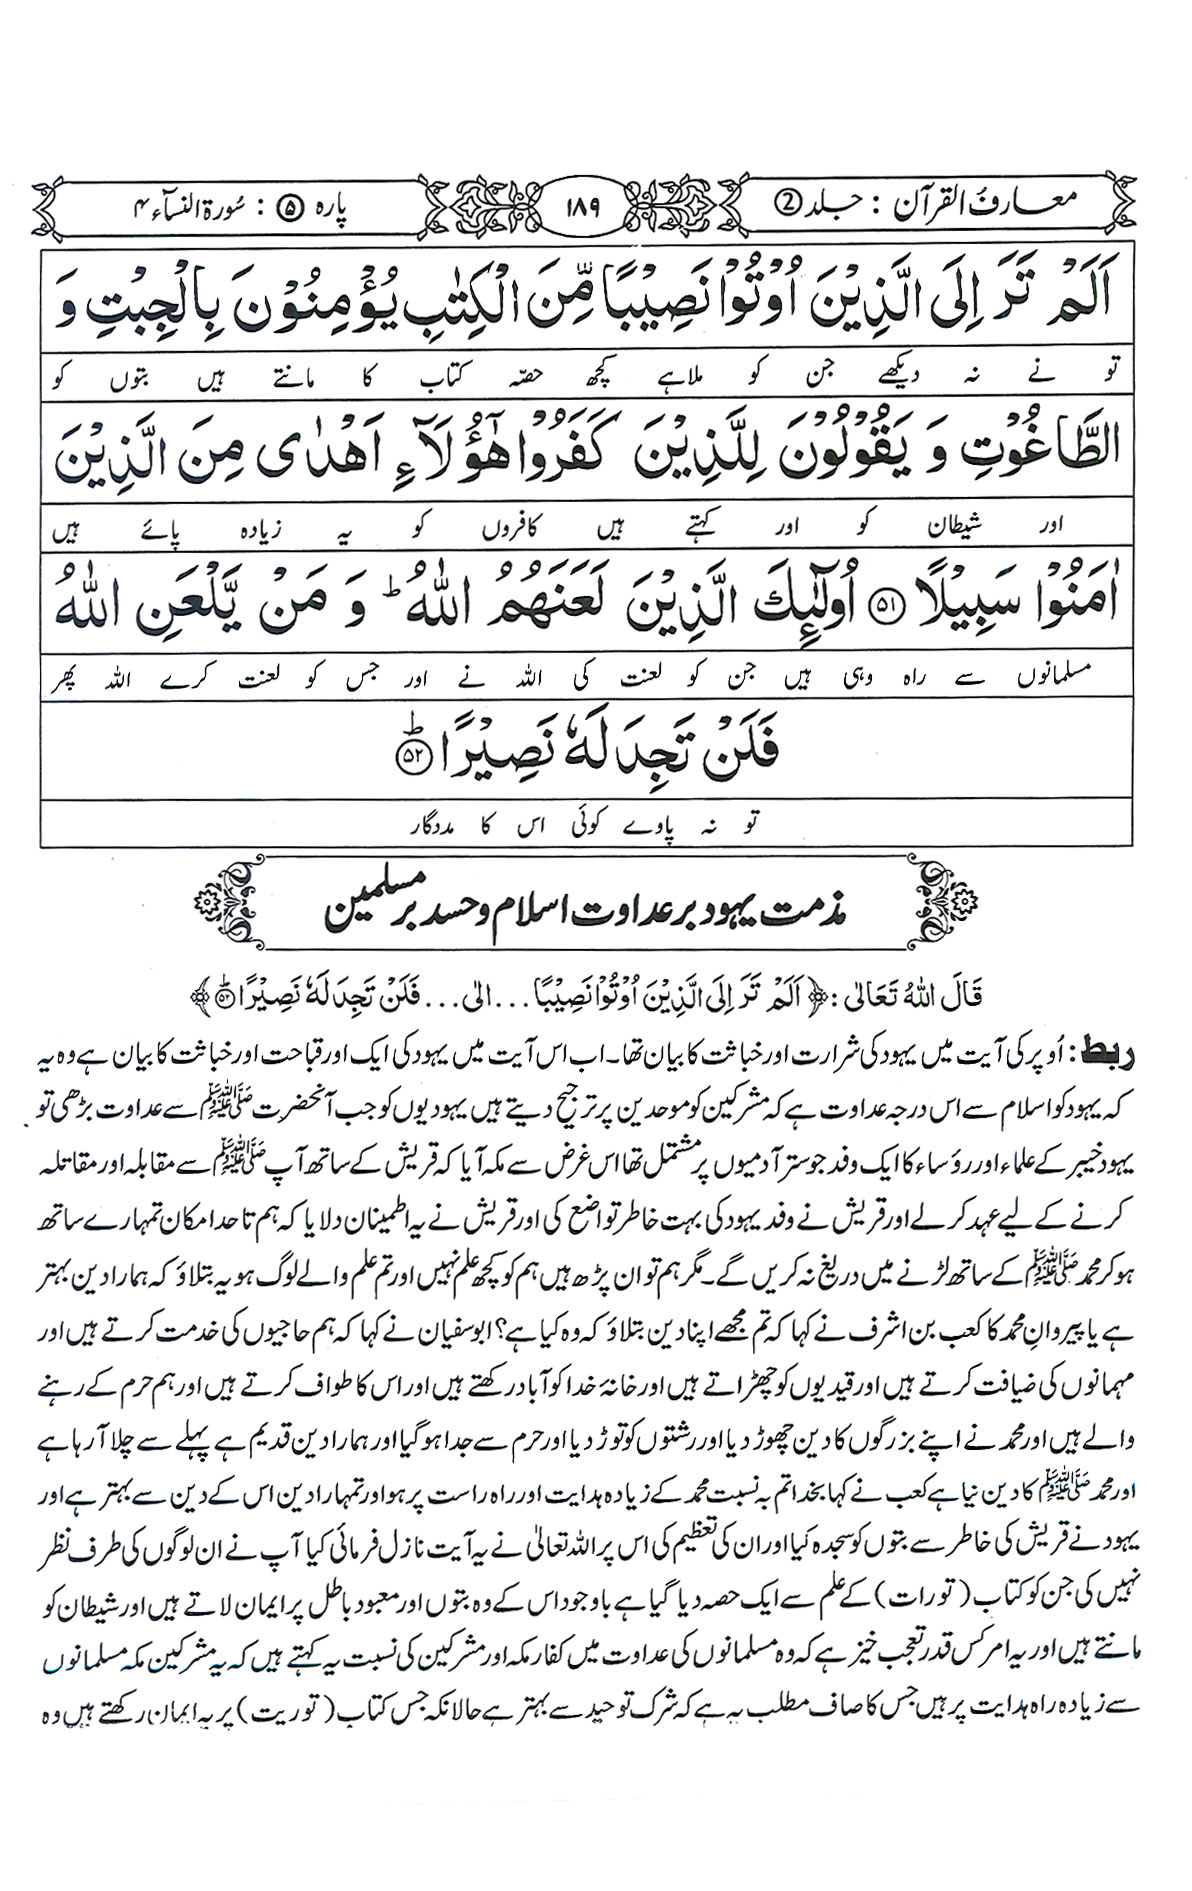 معارفُ القرآن : جلد ②
۱۸۹
پارہ ⑤ : سُورۃ النسآء ۴
اَلَمْ تَرَ اِلَى الَّذِيْنَ اُوْتُوْا نَصِيْبًا مِّنَ الْكِتٰبِ يُؤْمِنُوْنَ بِالْجِبْتِ وَ
تو نے نہ دیکھے جن کو ملا ہے کچھ حصّہ کتاب کا مانتے ہیں بتوں کو
الطَّاغُوْتِ وَ يَقُوْلُوْنَ لِلَّذِيْنَ كَفَرُوْا هٰٓؤُلَآءِ اَهْدٰى مِنَ الَّذِيْنَ
اور شیطان کو اور کہتے ہیں کافروں کو یہ زیادہ پائے ہیں
اٰمَنُوْا سَبِيْلًا ﴿۵۱﴾ اُولٰٓئِكَ الَّذِيْنَ لَعَنَهُمُ اللّٰهُ ؕ وَ مَنْ يَّلْعَنِ اللّٰهُ
مسلمانوں سے راہ وہی ہیں جن کو لعنت کی اللہ نے اور جس کو لعنت کرے اللہ پھر
فَلَنْ تَجِدَ لَهٗ نَصِيْرًا ﴿ؕ۵۲﴾
تو نہ پاوے کوئی اس کا مددگار
مذمت یہود بر عداوت اسلام و حسد بر مسلمین
قَالَ اللّٰهُ تَعَالٰى : ﴿اَلَمْ تَرَ اِلَى الَّذِيْنَ اُوْتُوْا نَصِيْبًا ... الٰى ... فَلَنْ تَجِدَ لَهٗ نَصِيْرًا ﴿ؕ۵۲﴾﴾
ربط : اُوپر کی آیت میں یہود کی شرارت اور خباثت کا بیان تھا۔ اب اس آیت میں یہود کی ایک اور قباحت اور خباثت کا بیان ہے وہ یہ
کہ یہود کو اسلام سے اس درجہ عداوت ہے کہ مشرکین کو موحدین پر ترجیح دیتے ہیں یہودیوں کو جب آنحضرت ﷺ سے عداوت بڑھی تو
یہود خیبر کے علماء اور رؤساء کا ایک وفد جو ستر آدمیوں پر مشتمل تھا اس غرض سے مکہ آیا کہ قریش کے ساتھ آپ ﷺ سے مقابلہ اور مقاتلہ
کرنے کے لیے عہد کر لے اور قریش نے وفد یہود کی بہت خاطر تواضع کی اور قریش نے یہ اطمینان دلایا کہ ہم تا حد امکان تمہارے ساتھ
ہو کر محمد ﷺ کے ساتھ لڑنے میں دریغ نہ کریں گے۔ مگر ہم تو ان پڑھ ہیں ہم کو کچھ علم نہیں اور تم علم والے لوگ ہو یہ بتلاؤ کہ ہمارا دین بہتر
ہے یا پیروانِ محمد کا کعب بن اشرف نے کہا کہ تم مجھے اپنا دین بتلاؤ کہ وہ کیا ہے؟ ابو سفیان نے کہا کہ ہم حاجیوں کی خدمت کرتے ہیں اور
مہمانوں کی ضیافت کرتے ہیں اور قیدیوں کو چھڑاتے ہیں اور خانۂ خدا کو آباد رکھتے ہیں اور اس کا طواف کرتے ہیں اور ہم حرم کے رہنے
والے ہیں اور محمد نے اپنے بزرگوں کا دین چھوڑ دیا اور رشتوں کو توڑ دیا اور حرم سے جدا ہو گیا اور ہمارا دین قدیم ہے پہلے سے چلا آ رہا ہے
اور محمد ﷺ کا دین نیا ہے کعب نے کہا بخدا تم بہ نسبت محمد کے زیادہ ہدایت اور راہ راست پر ہو اور تمہارا دین اس کے دین سے بہتر ہے اور
یہود نے قریش کی خاطر سے بتوں کو سجدہ کیا اور ان کی تعظیم کی اس پر اللہ تعالیٰ نے یہ آیت نازل فرمائی کیا آپ نے ان لوگوں کی طرف نظر
نہیں کی جن کو کتاب (تورات) کے علم سے ایک حصہ دیا گیا ہے باوجود اس کے وہ بتوں اور معبود باطل پر ایمان لاتے ہیں اور شیطان کو
مانتے ہیں اور یہ امر کس قدر تعجب خیز ہے کہ وہ مسلمانوں کی عداوت میں کفار مکہ اور مشرکین کی نسبت یہ کہتے ہیں کہ یہ مشرکین مکہ مسلمانوں
سے زیادہ راہ ہدایت پر ہیں جس کا صاف مطلب یہ ہے کہ شرک توحید سے بہتر ہے حالانکہ جس کتاب (توریت) پر یہ ایمان رکھتے ہیں وہ